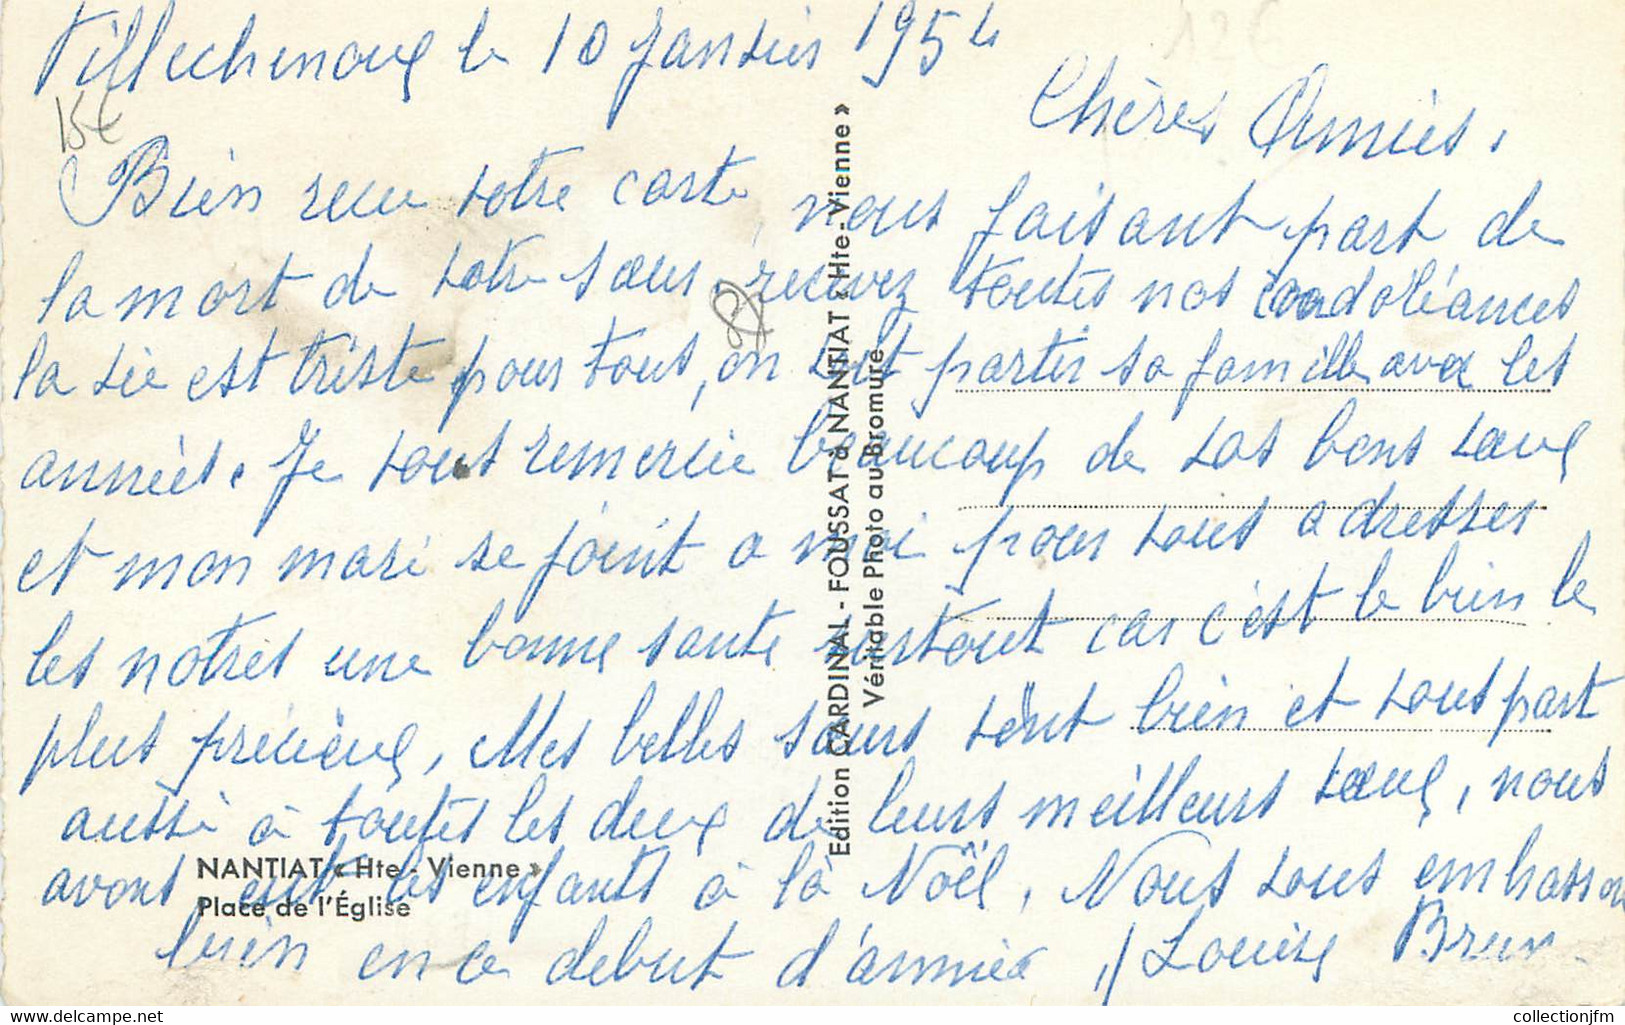 Villechenoux le 10 Janvier 1954
12€
15€
Chères Amies.
Bien reçu votre carte, nous faisant part de
la mort de votre sœur, recevez toutes nos condoléances
la vie est triste pour tous, on voit partir sa famille avec les
années. Je vous remercie beaucoup de vos bons vœux
et mon mari se joint a moi pour vous adresser
les notres une bonne santé surtout car c'est le bien le
plus précieux, Mes belles sœurs vont bien et vous part
aussi à toutes les deux de leurs meilleurs vœux, nous
avons eut les enfants à la Noël, Nous vous embrassons
bien en ce debut d'année // Louise Brun
Edition CARDINAL - FOUSSAT à NANTIAT « Hte - Vienne »
Véritable Photo au Bromure
NANTIAT « Hte - Vienne »
Place de l'Église
collectionjfm